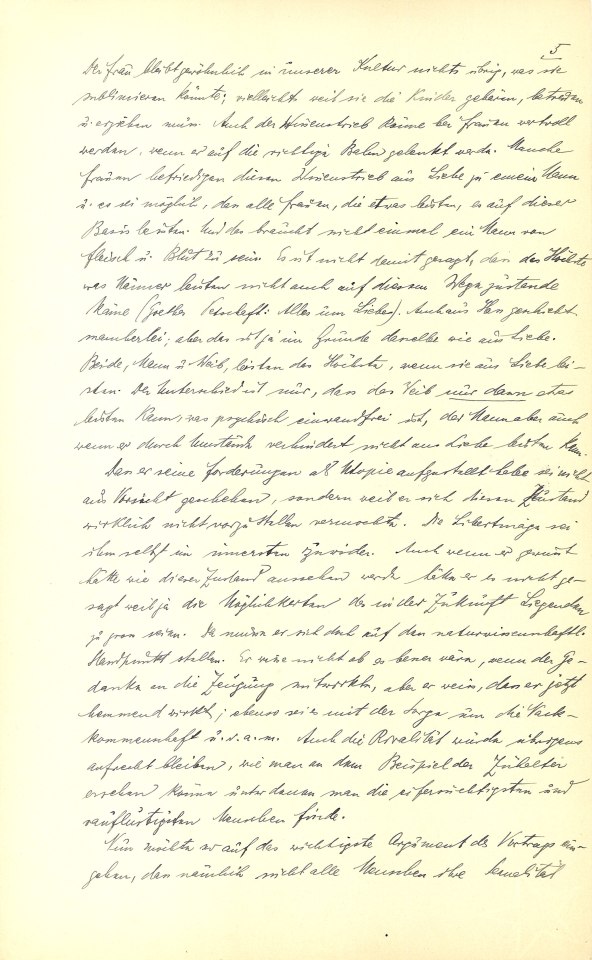 5
Der Frau bleibt gewöhnlich in unserer Kultur nichts übrig, was sie
sublimieren könnte; vielleicht weil sie die Kinder gebären, betreuen
u. erziehen muss. Auch der Wissenstrieb könne bei Frauen wertvoll
werden, wenn er auf die richtige Bahn gelenkt werde. Manche
Frauen befriedigen diesen Wissenstrieb aus Liebe zu einem Mann
u. es sei möglich, dass alle Frauen, die etwas leisten, es auf dieser
Basis leisten. Und das braucht nicht einmal ein Mann von
Fleisch u. Blut zu sein. Es ist nicht damit gesagt, dass das Höchste
was Männer leisten nicht auch auf diesem Wege zustande
käme (Goethes Petschaft: Alles um Liebe). Auch aus Hass geschieht
mancherlei; aber das ist ja im Grunde dasselbe wie aus Liebe.
Beide, Mann u. Weib, leisten das Höchste, wenn sie aus Liebe lei-
sten. Der Unterschied ist nur, dass das Weib nur dann etwas
leisten kann, was psychisch einwandfrei ist, der Mann aber auch
wenn er durch Umstände verhindert nicht aus Liebe leisten kann.
Dass er seine Forderungen als Utopie aufgestellt habe sei nicht
aus Vorsicht geschehen, sondern weil er sich diesen Zustand
wirklich nicht vorzustellen vermochte. Die Libertinage sei
ihm selbst im innersten zuwider. Auch wenn er gewusst
hätte wie dieser Zustand aussehen werde hätte er es nicht ge-
sagt weil ja die Möglichkeiten des in der Zukunft Liegenden
zu gross seien. Da müsse er sich doch auf den naturwissenschaftl.
Standpunkt stellen. Er wisse nicht ob es besser wäre, wenn der Ge-
danke an die Zeugung mitwirkte, aber er weiss, dass er jetzt
hemmend wirkt; ebenso sei es mit der Sorge um die Nach-
kommenschaft u.s.a.m. Auch die Rivalität würde übrigens
aufrecht bleiben, wie man an dem Beispiel der Zuhälter
ersehen könne unter denen man die eifersüchtigsten und
rauflustigsten Menschen finde.
Nun möchte er auf das wichtigste Argument des Vortrags ein-
gehen, dass nämlich nicht alle Menschen ihre Sexualität